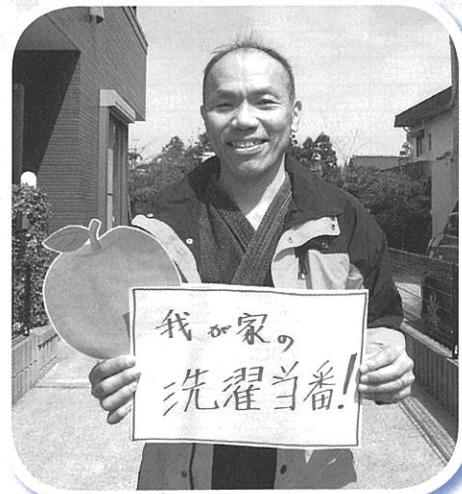 我が家の
洗濯当番!